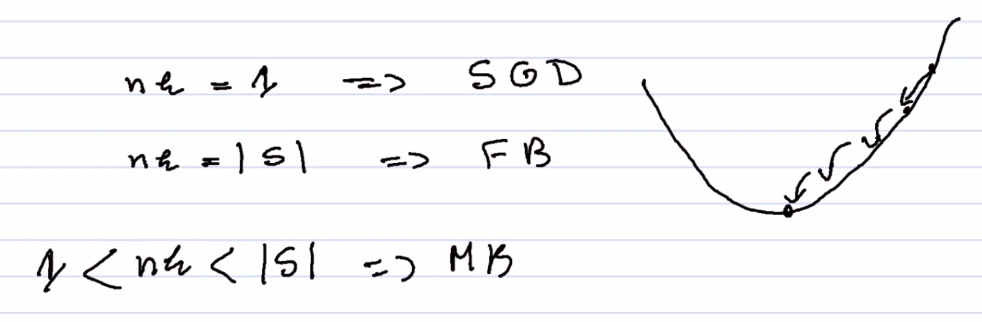 nk = 1 => SGD
nk = |S| => FB
1 < nk < |S| => MB